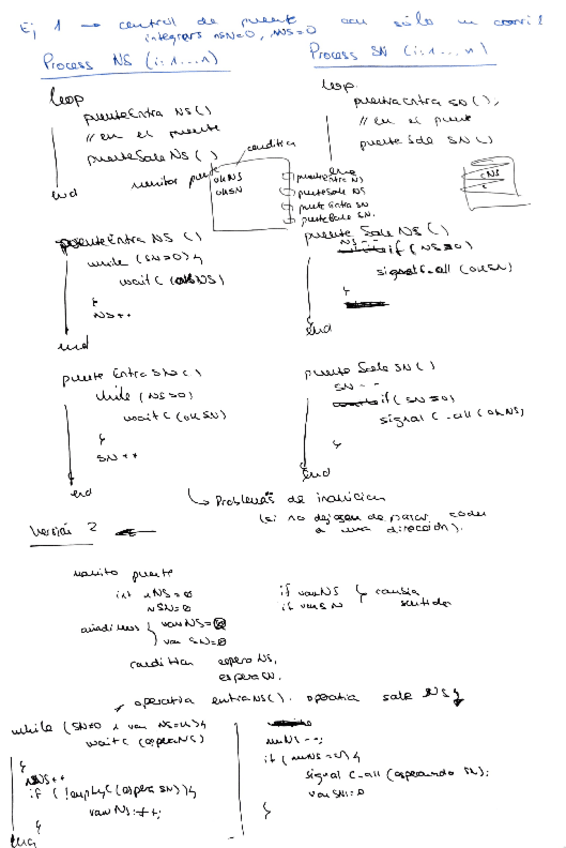 Ej 1 → control de puente con sólo un carril
integers nSN=0, nNS=0
Process NS (i:1...n)
loop
puenteEntra NS()
// en el puente
puenteSale NS()
end
Process SN (i:1...n)
loop
puenteEntra SN();
// en el puente
puenteSale SN()
end
monitor puente
condition
okNS
okSN
puenteEntra NS
puenteSale NS
puente Entra SN
puenteSale SN.
NS
puenteEntra NS ()
while (SN>0) {
waitC (okNS)
}
NS++
end
puente Sale NS()
NS--
if (NS=0)
signalC_all (okSN)
}
end
puente Entra SN()
while (NS>0)
waitC (okSN)
}
SN++
end
puente Sale SN()
SN--
if (SN=0)
signal C_all (okNS)
}
end
↳ Problemas de inanición
(si no dejasen de pasar coches
a una dirección).
Versión 2
monitor puente
int nNS=0
nSN=0
añadimos { vanNS=0
van SN=0
condition espera NS,
espera SN.
if vanNS } cambia
if vanSN sentido
operativa entraNS(). operativa sale NS}
while (SN≠0 van NS=
waitC (esperaNS)
}
nNS++
if (!emptyC(espera SN)){
vanNS:++;
}
end
nNS--;
if (nNS=0){
signal C_all (esperando SN);
vanSN:=0
}